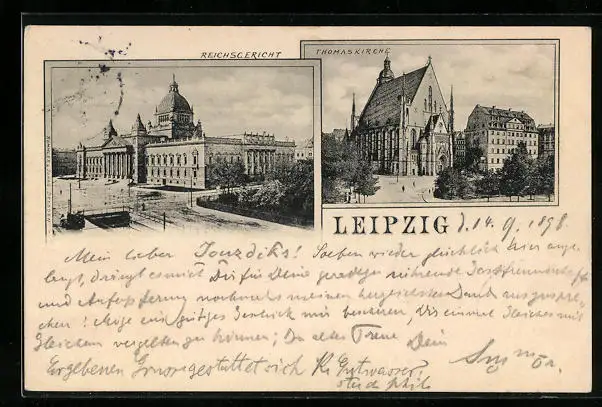 REICHSGERICHT
THOMASKIRCHE
LEIPZIG d. 14. 9. 1898.
Mein lieber ! Soeben wieder glücklich hier ange-
langt, drängt es mich Dir für Deine geradezu rührende
und Aufopferung nochmals meinen herzlichsten Dank auszuspre-
chen! Möge ein gütiges Geschick mir bescheren, Dir einmal Gleiches mit
Gleichem vergelten zu können; In alter Treue Dein
Ergebenen Gruss gestattet sich
stud. phil.